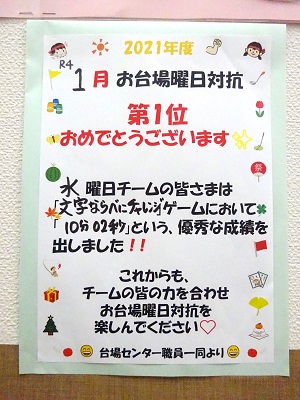 2021年度
R4
1月 お台場曜日対抗
第1位
おめでとうございます
水 曜日チームの皆さまは
「文字ならべにチャレンジゲームにおいて
「10分02秒」という、優秀な成績を
出しました!!
これからも、
チームの皆の力を合わせ
お台場曜日対抗を
楽しんでください♡
台場センター職員一同より
祭